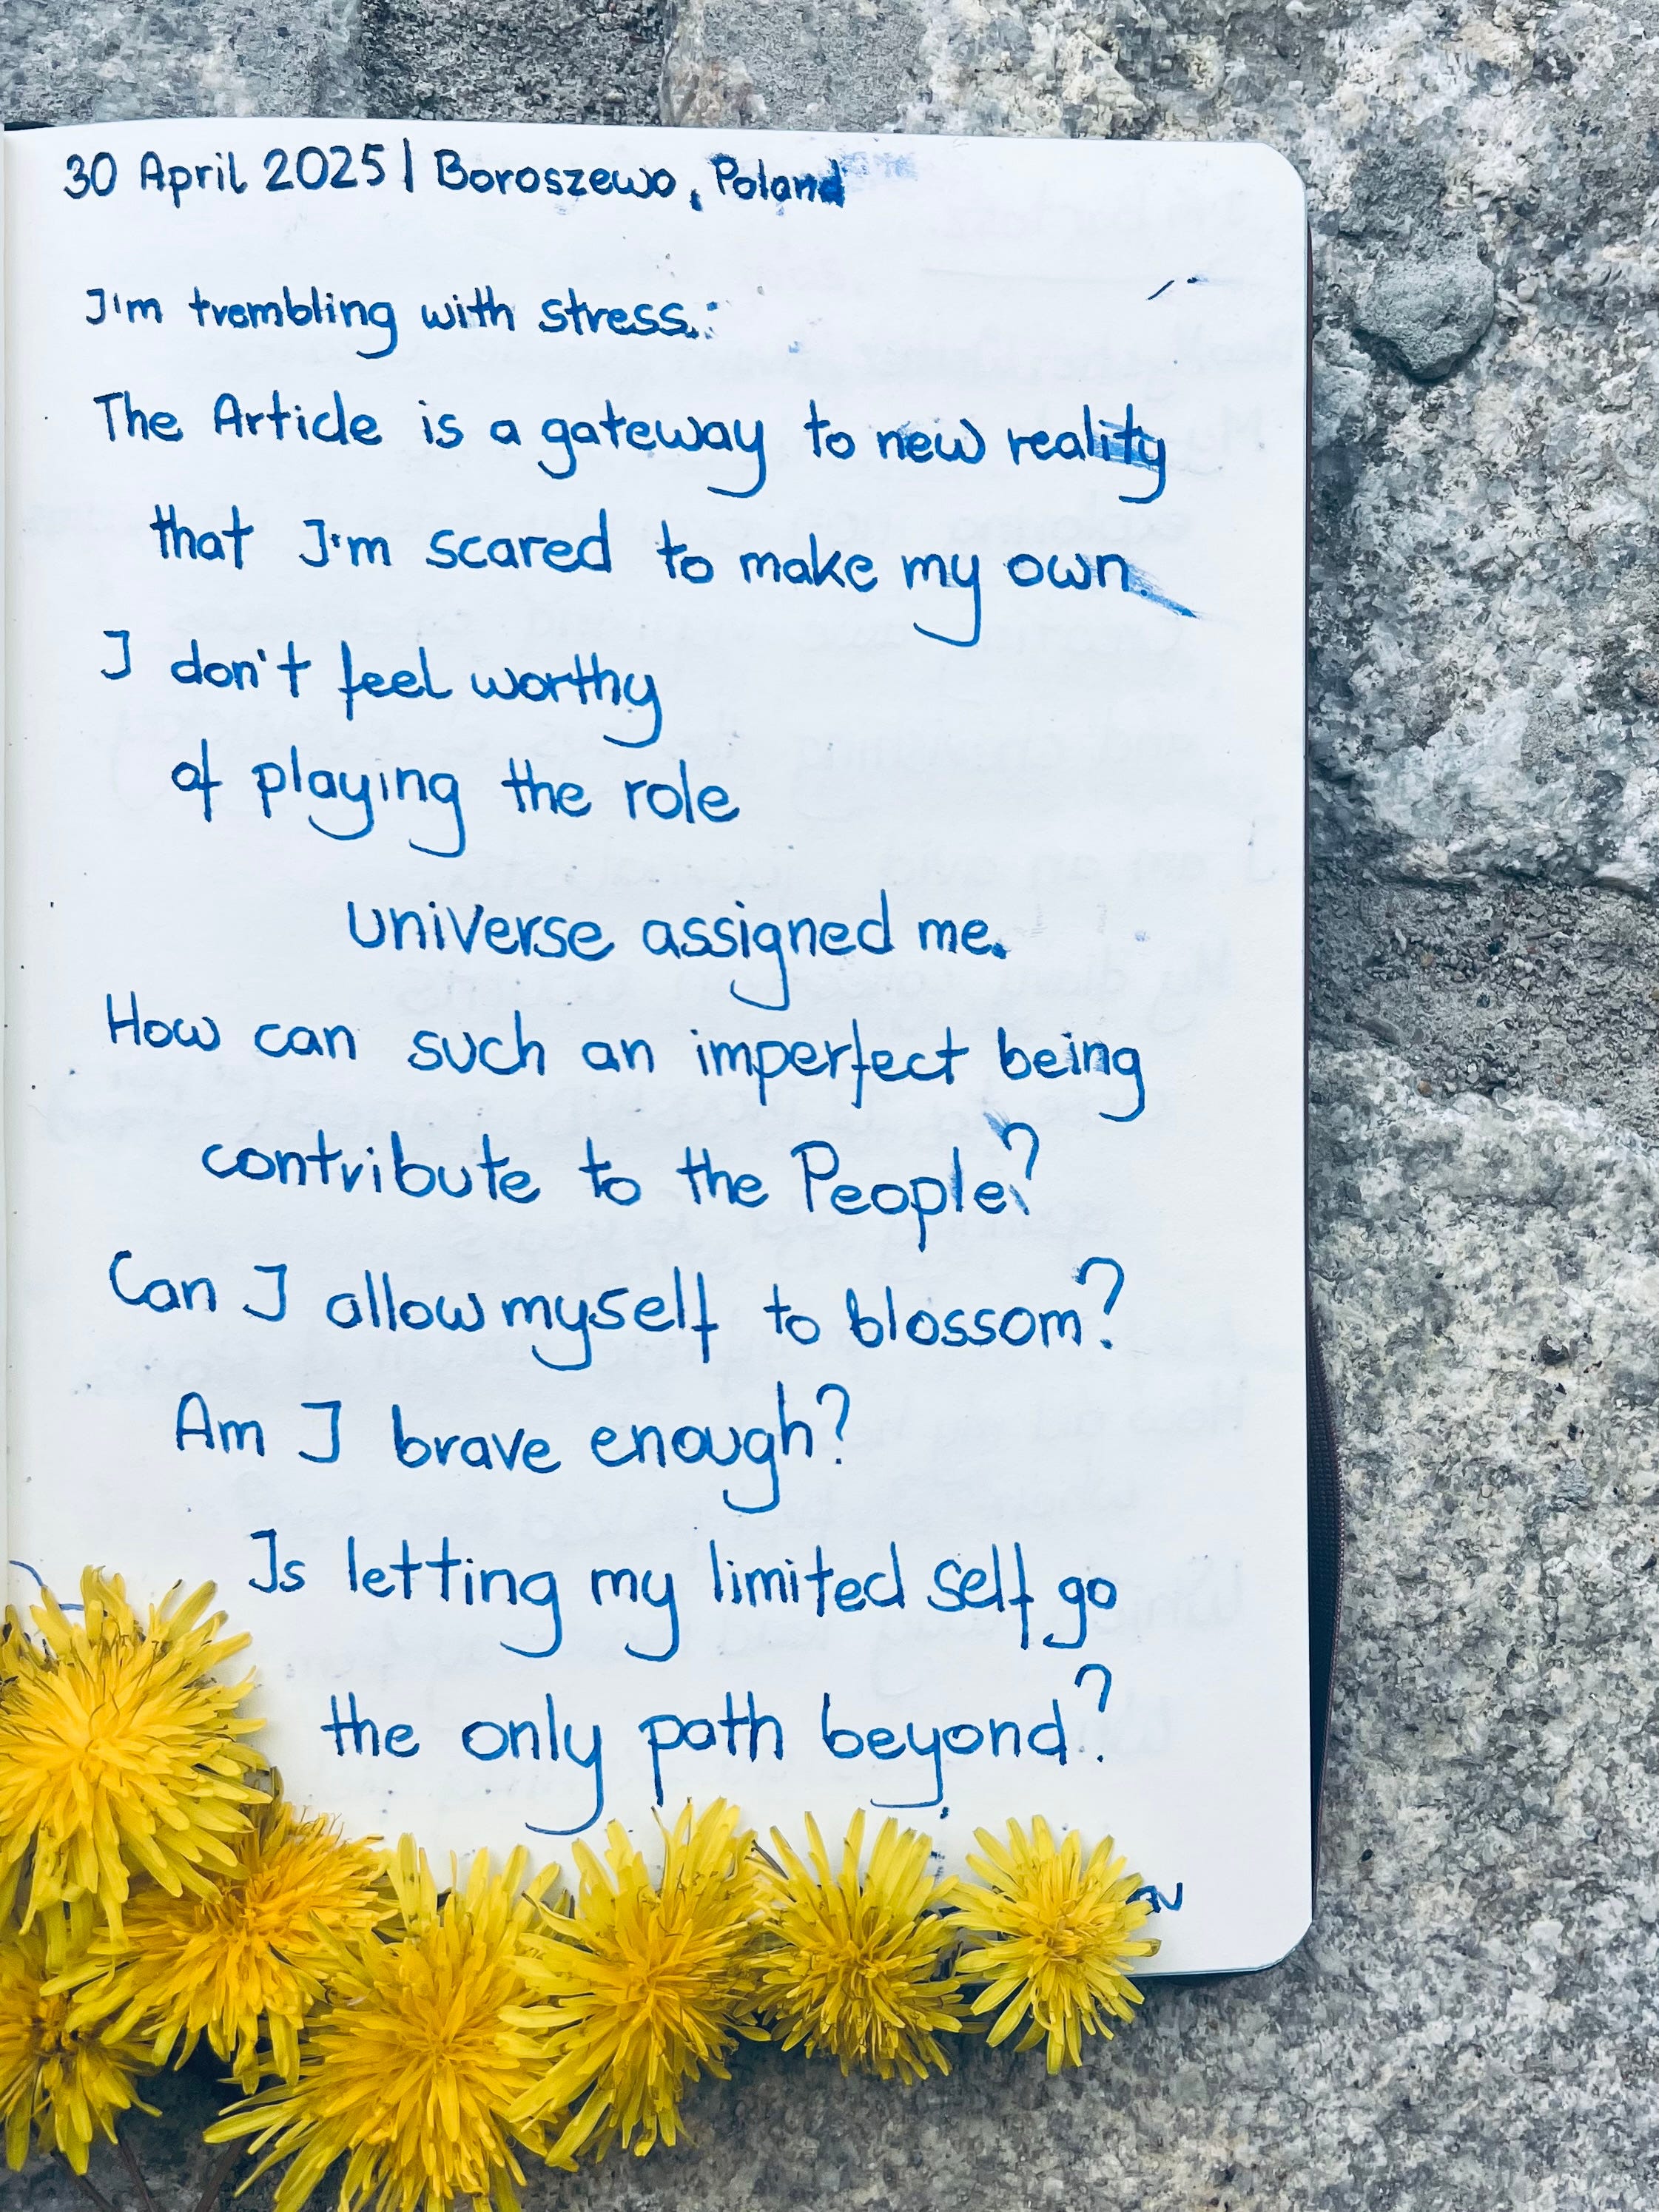 30 April 2025 | Boroszewo, Poland
I'm trembling with stress.
The Article is a gateway to new reality
that I'm scared to make my own.
I don't feel worthy
of playing the role
universe assigned me.
How can such an imperfect being
contribute to the People?
Can I allow myself to blossom?
Am I brave enough?
Is letting my limited self go
the only path beyond?